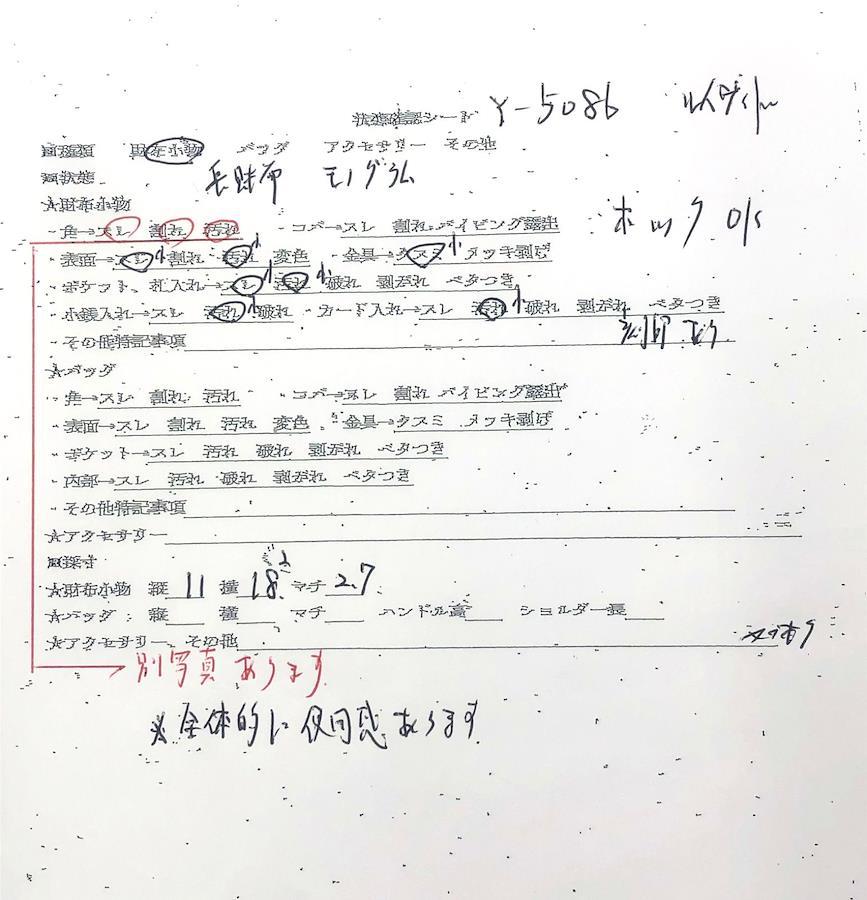 状態確認シート Y-5086 ルイヴィトン
■種類 財布小物 バッグ アクセサリー その他
■状態 長財布 モノグラム
★財布小物
・角→スレ 割れ 汚れ ・コバ→スレ 割れ パイピング露出 ホック O/S
・表面→スレ小 割れ 汚れ小 変色 ・金具→クスミ小 メッキ剥げ
・ポケット、札入れ→スレ小 汚れ小 破れ 剥がれ ベタつき
・小銭入れ→スレ 汚れ小 破れ ・カード入れ→スレ 汚れ小 破れ 剥がれ ベタつき
・その他特記事項 刻印
★バッグ
・角→スレ 割れ 汚れ ・コバ→スレ 割れ パイピング露出
・表面→スレ 割れ 汚れ 変色 ・金具→クスミ メッキ剥げ
・ポケット→スレ 汚れ 破れ 剥がれ ベタつき
・内部→スレ 汚れ 破れ 剥がれ ベタつき
・その他特記事項
★アクセサリー
■採寸
★財布小物 縦 11 横 18. マチ 2.7
★バッグ: 縦 横 マチ ハンドル高 ショルダー長
★アクセサリー、その他
別写真あります
※全体的に使用感あります